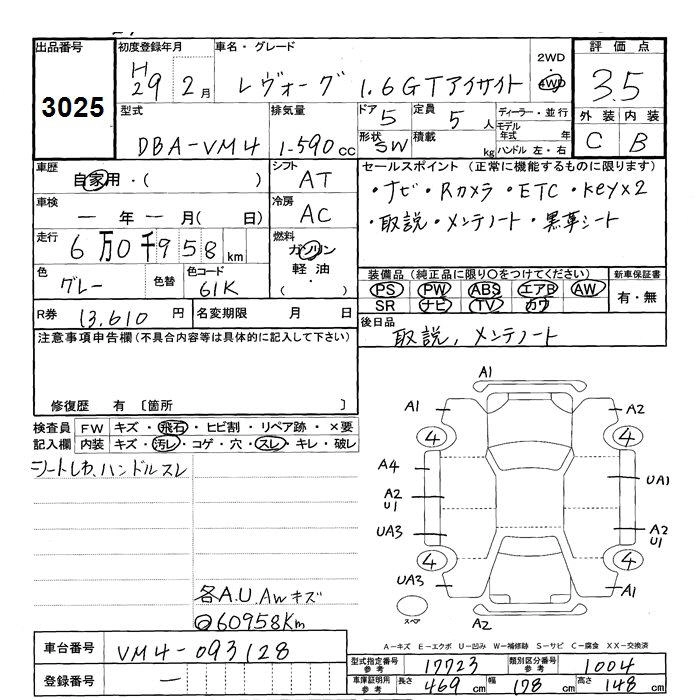 出品番号
3025
初度登録年月
H29 2月
車名・グレード
レヴォーグ 1.6GTアイサイト
2WD
4WD
評価点
3.5
外装 内装
C B
型式
DBA-VM4
排気量
1-590cc
ドア 5
定員 5人
形状 SW
積載 kg
ディーラー・並行
モデル年式 年
ハンドル 左・右
車歴
自家用・( )
シフト
AT
車検
一年一月( 日)
冷房
AC
走行
6万0千958km
燃料
ガソリン
軽油
( ・ )
色
グレー
色替
色コード
61K
セールスポイント (正常に機能するものに限ります)
・ナビ・Rカメラ・ETC・keyx2
・取説・メンテノート・黒革シート
装備品 (純正品に限り○をつけてください)
PS PW ABS エアB AW
SR ナビ TV カワ
新車保証書
有・無
R券 13,610円
名変期限 月 日
後日品
取説, メンテノート
注意事項申告欄 (不具合内容等は具体的に記入して下さい)
修復歴 有 〔箇所 〕
検査員記入欄
FW キズ・飛石・ヒビ割・リペア跡・×要
内装 キズ・汚レ・コゲ・穴・スレ・キレ・破レ
シートしわ、ハンドルスレ
各A.U.Awキズ
60958Km
A1
A1 A2
4 4
A4
UA1
A2
U1
UA3
A2
U1
4 4
UA3 A1
スペア
A2
A-キズ E-エクボ U-凹み W-補修跡 S-サビ C-腐食 XX-交換済
車台番号
VM4-093128
登録番号
一
型式指定番号 参考 17723
類別区分番号 参考 1004
車庫証明用 参考 長さ 469cm 幅 178cm 高さ 148cm